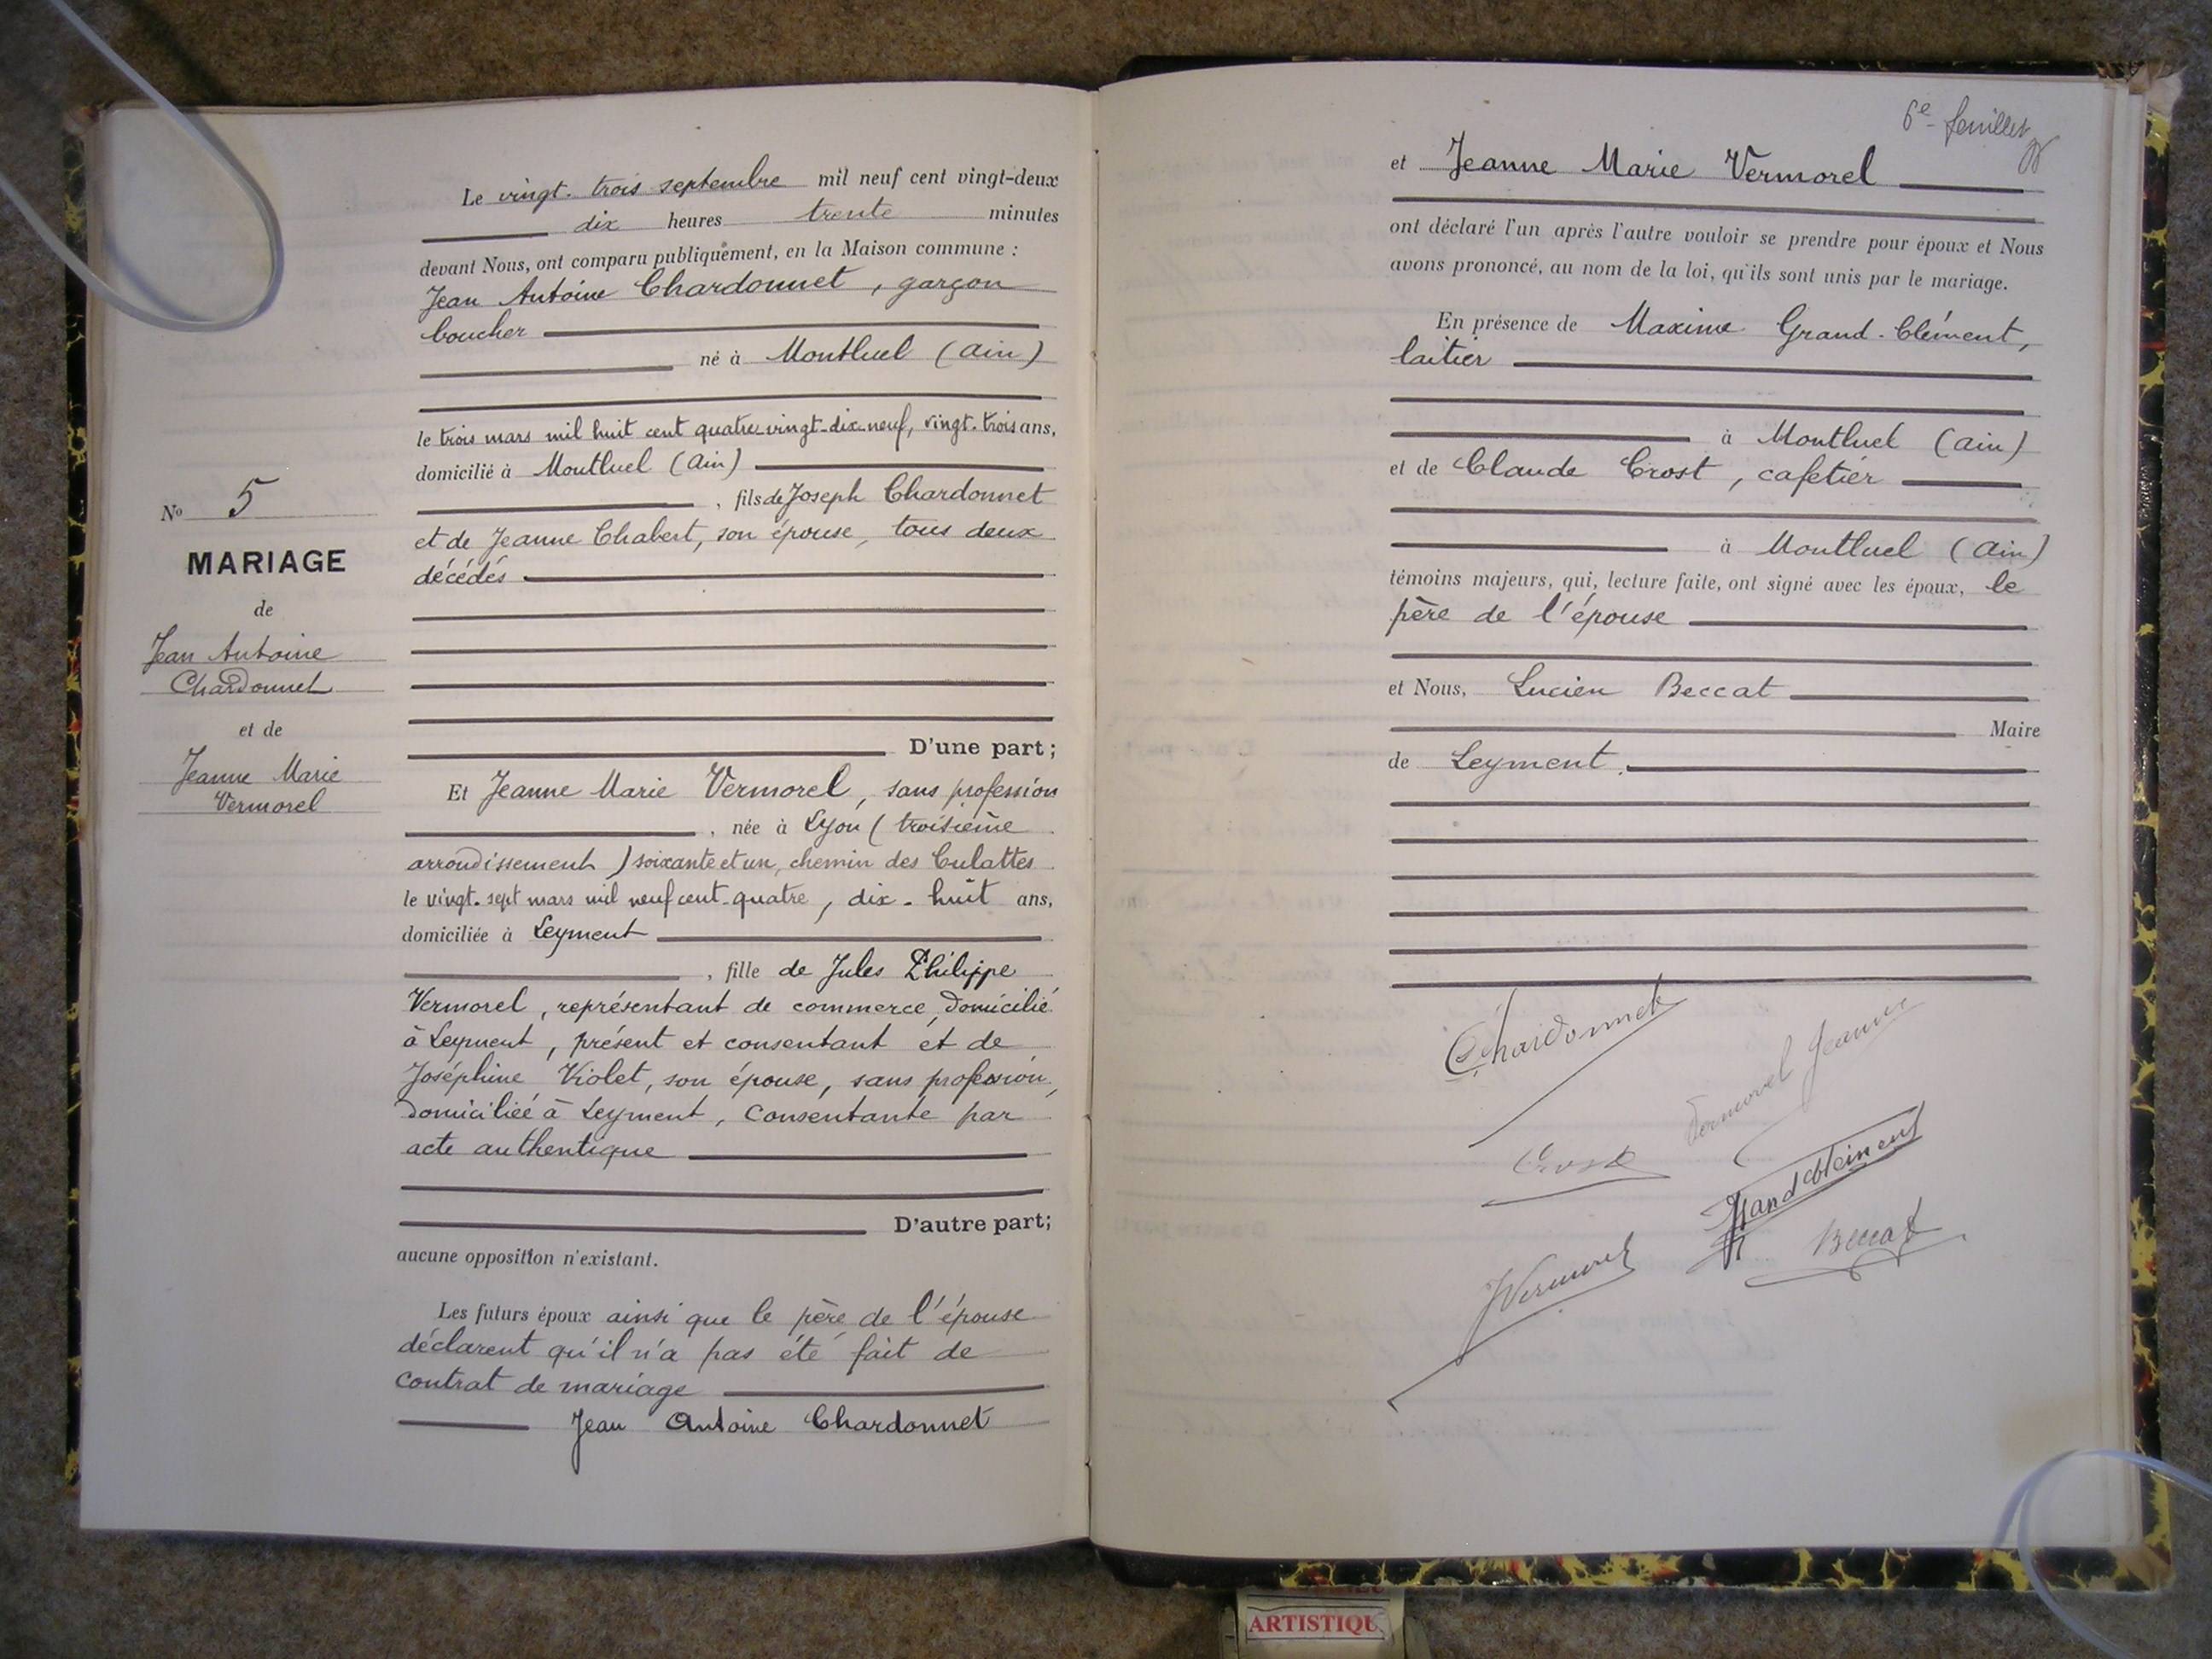 Le vingt-trois septembre mil neuf cent vingt-deux
dix heures trente minutes
devant Nous, ont comparu publiquement, en la Maison commune :
Jean Antoine Chardonnet, garçon
boucher
né à Montluel (Ain)
le trois mars mil huit cent quatre-vingt-dix-neuf, vingt-trois ans,
domicilié à Montluel (Ain)
, fils de Joseph Chardonnet
et de Jeanne Chabert, son épouse, tous deux
décédés
D'une part ;
No 5
MARIAGE
de
Jean Antoine
Chardonnet
et de
Jeanne Marie
Vermorel
Et Jeanne Marie Vermorel, sans profession
, née à Lyon (troisième
arrondissement) soixante et un, chemin des Culattes
le vingt-sept mars mil neuf cent quatre, dix-huit ans,
domiciliée à Leyment
, fille de Jules Philippe
Vermorel, représentant de commerce, domicilié
à Leyment, présent et consentant et de
Joséphine Violet, son épouse, sans profession,
domiciliée à Leyment, consentante par
acte authentique
D'autre part;
aucune opposition n'existant.
Les futurs époux ainsi que le père de l'épouse
déclarent qu'il n'a pas été fait de
contrat de mariage
Jean Antoine Chardonnet
6e feuillet
et Jeanne Marie Vermorel
ont déclaré l'un après l'autre vouloir se prendre pour époux et Nous
avons prononcé, au nom de la loi, qu'ils sont unis par le mariage.
En présence de Maxime Grand-Clément,
laitier
à Montluel (Ain)
et de Claude Crost, cafetier
à Montluel (Ain)
témoins majeurs, qui, lecture faite, ont signé avec les époux, le
père de l'épouse
et Nous, Lucien Beccat
Maire
de Leyment.
Chardonnet
Vermorel Jeanne
Crost
Grandclément
JVermorel
Beccat
ARTISTIQU